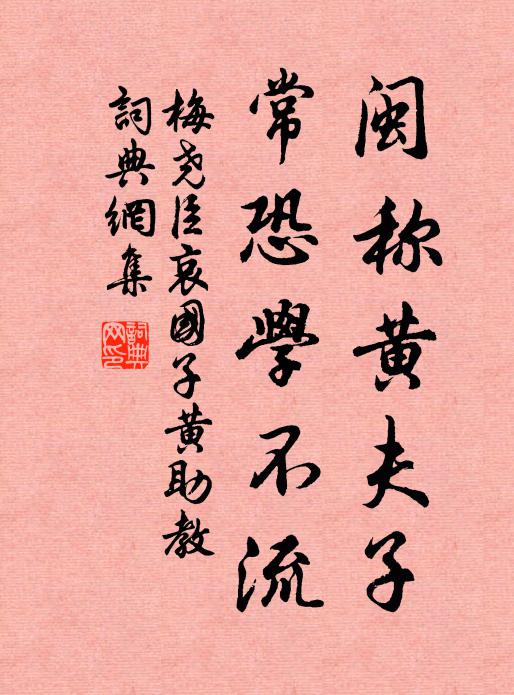 闽称黄夫子
常恐學不流
梅尧臣哀國子黄助教
詞典網集
詞典网印